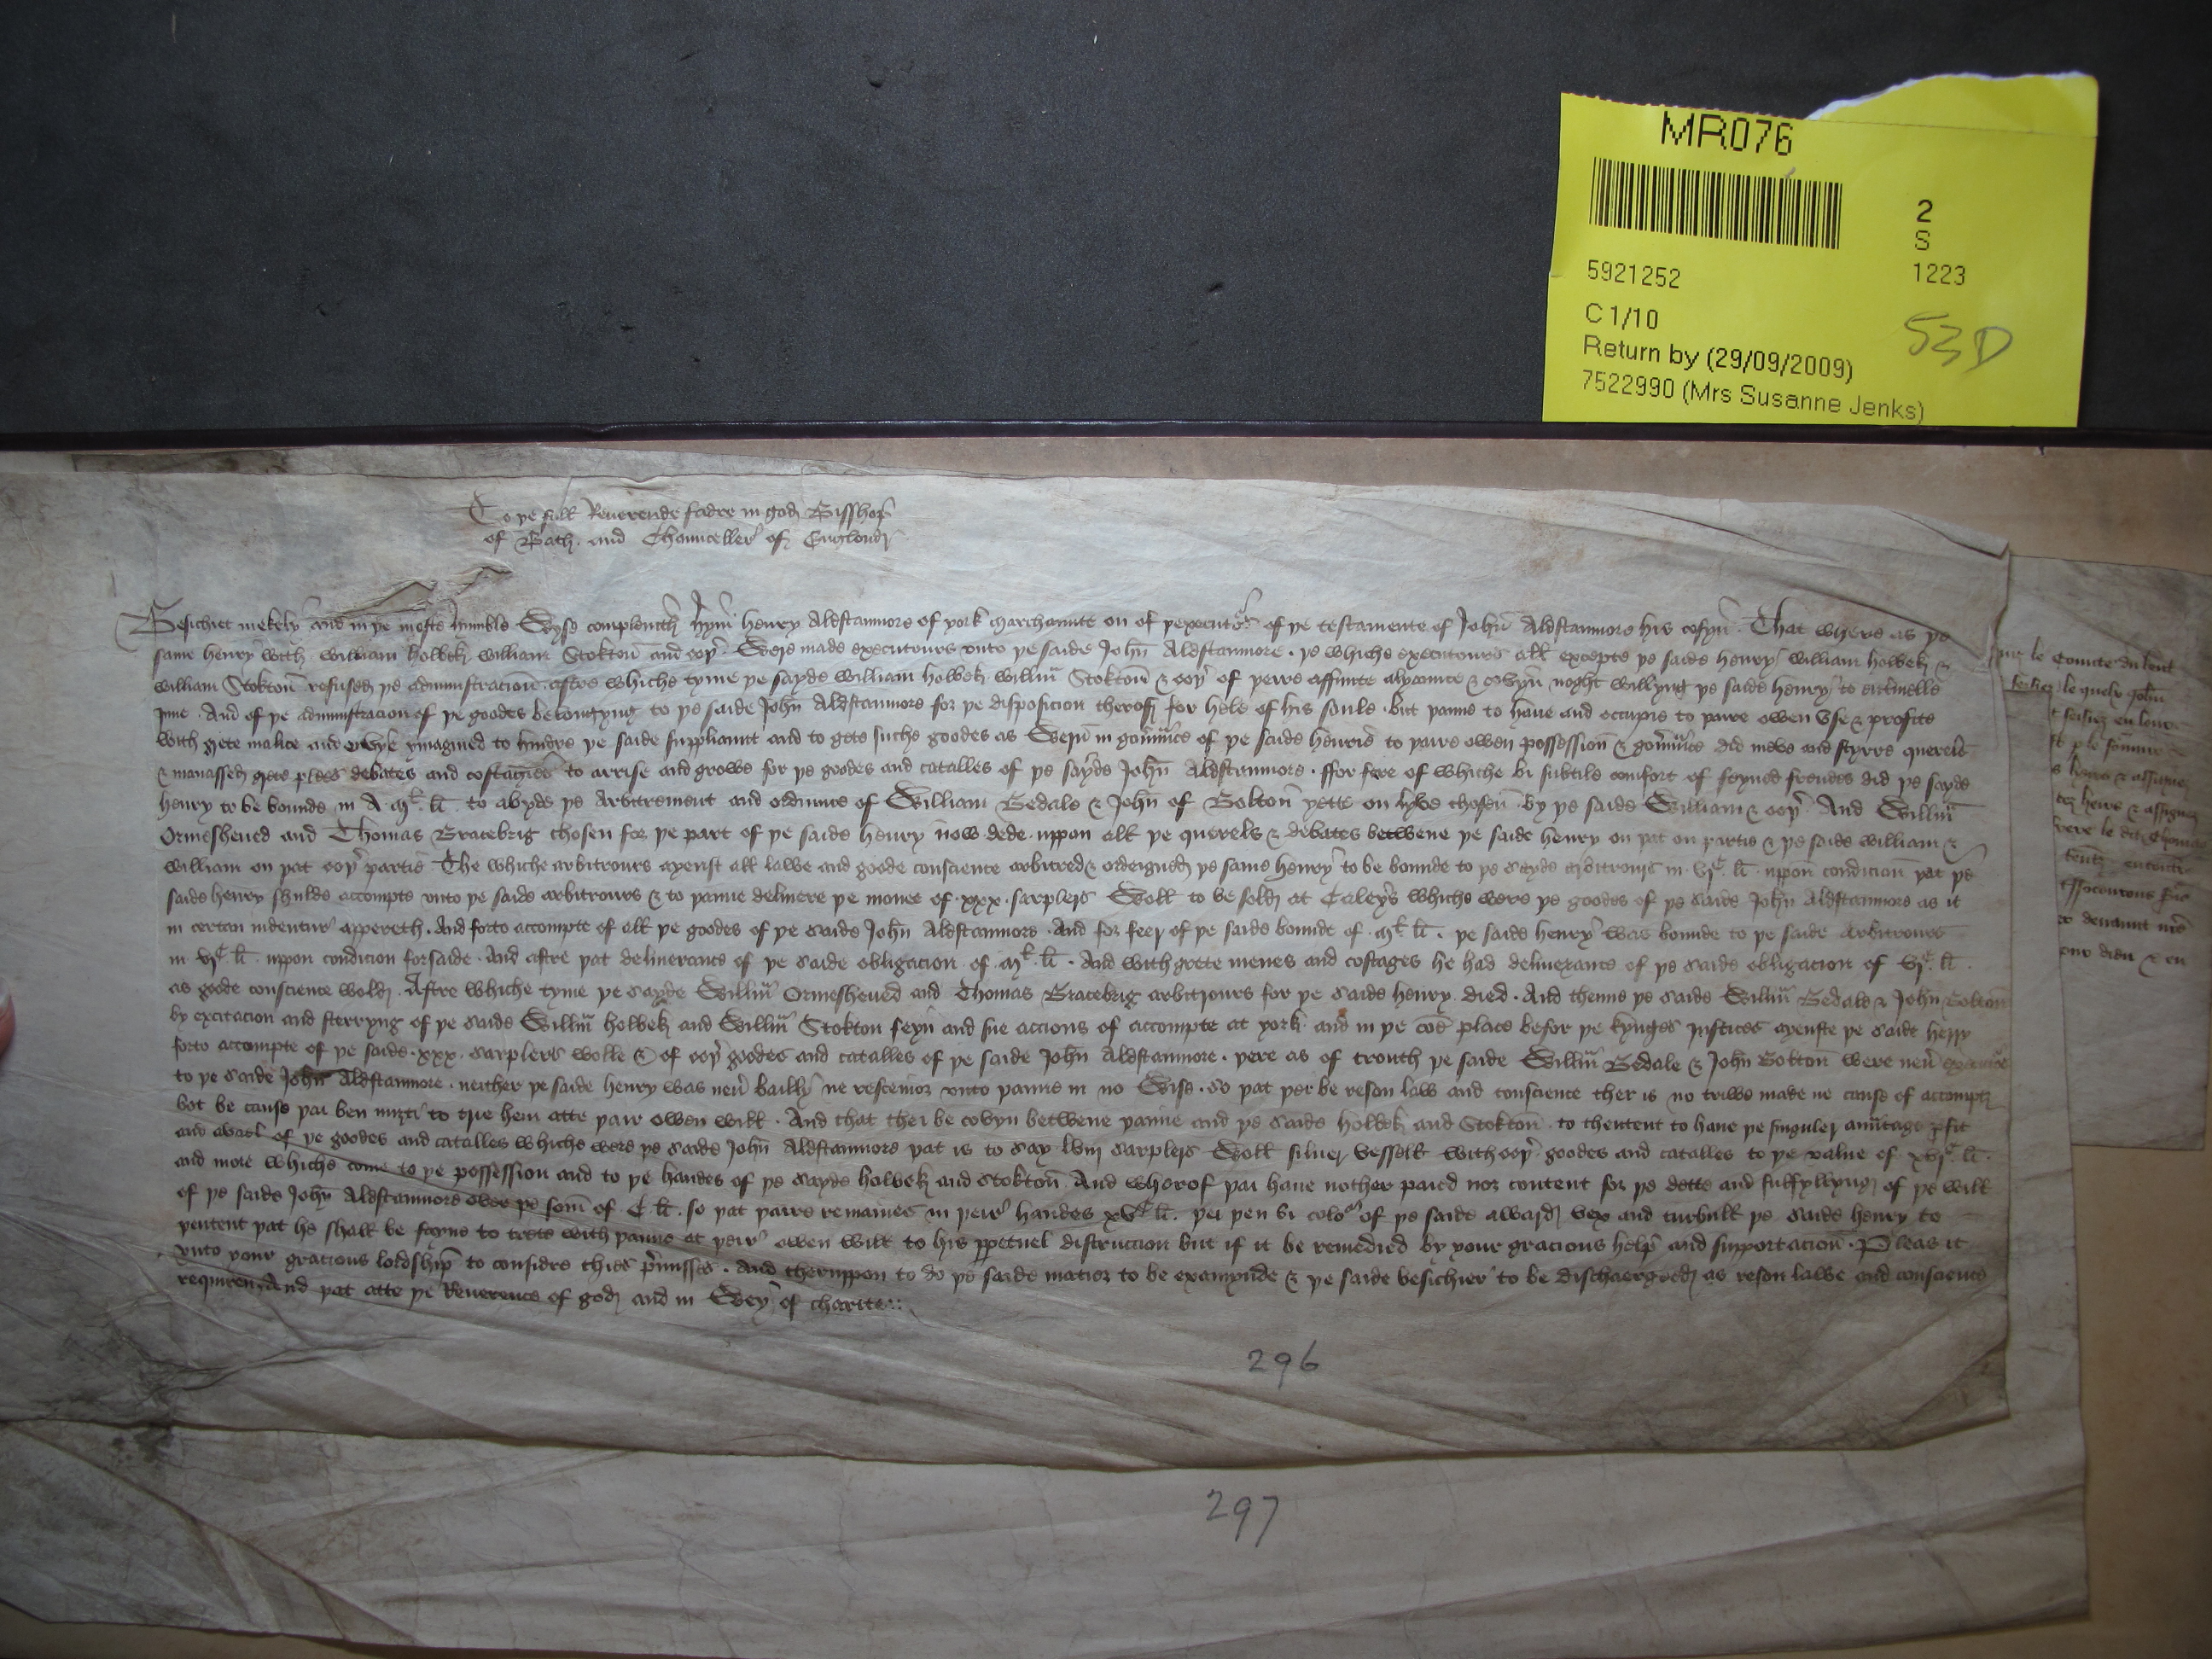 MR076
2
S
5921252
1223
C 1/10
53D
Return by (29/09/2009)
7522990 (Mrs Susanne Jenks)
To þe full Reuerende fadre in god Bisshop
of Bath and Chaunceller of Englond
Besichiet mekely and in þe moste humble Wyse compleineth hym henry Aldstanmore of york marchaunte on of þexecutours of þe testamente of John Aldstanmore his cosyn. That where as þe
same henry with william holbek william Stokton and oþer Were made executours vnto þe saide John Aldstanmore. þe whiche executours all excepte þe saide henry william holbek &
william Stokton refused þe administracioun. aftre whiche tyme þe sayde william holbek willm Stokton & oþer of þeire affinite alyaunce & covyn noght willyng þe saide henry to entmelle
And of þe administracion of þe goodes belongyng to þe saide John Aldstanmore for þe disposicion therof for hele of his soule. but þanne to haue and occupie to þaire owen Vse & profite
with grete malice and envye ymagined to hindre þe saide suppliaunt and to gete suche goodes as Wern in gouernance of þe saide henrie to þaire owen possession & gouernance did meve and styrre querels
& manassed grete plees debates and costages to arrise and growe for þe goodes and catalles of þe sayde John Aldstanmore. ffor fere of whiche bi subtile comfort of feyned frendes did þe sayde
henry to be bounde in A m li. to abyde þe Arbitrement and ordinance of William Bedale & John of Bolton yette on lyve chosen by þe saide William & oþer And Willm
Ormesheued and Thomas Bracebrig chosen for þe part of þe saide henry now dede. uppon all þe querels & debates betwene þe saide henry on þat on partie & þe saide william &
william on þat oþer partie The whiche arbitrours ayenst all lawe and goode conscience arbitred & ordeigned þe same henry to be bounde to þe sayde arbitrours in vjc li. uppon condicioun þat þe
saide henry shulde accompte vnto þe saide arbitrours & to þame deliuere þe monee of xxx sarplers Woll to be sold at Caleys whiche were þe goodes of þe saide John Aldstanmore as it
in certen indentur appereth. And forto accompte of all þe goodes of þe saide John Aldstanmore. And for feer of þe saide bounde of m li. þe saide henry was bounde to þe saide Arbitrours
in vjc li. uppon condicion forsaide. And aftre þat deliuerance of þe saide obligacion of m li. And with grete menes and costages he had deliuerance of þe saide obligacion of vjc li.
as goode conscience wold. Aftre whiche tyme þe sayde Willm Ormesheued and Thomas Bracebrig arbitrours for þe saide henry died. And thenne þe saide Willm Bedale & John Bolton
by excitacion and sterryng of þe saide Willm holbek and Willm Stokton feyn and sue accions of accompte at york and in þe coe place befor þe kynges Justices ayenste þe saide henry
forto accompte of þe saide xxx sarplers wolle & of oþer goodes and catalles of þe saide John Aldstanmore. þere as of trouth þe saide Willm Bedale & John Bolton were neuer executours
to þe saide John Aldstanmore. neither þe saide henry was neuer bailly ne resceiuor vnto þanne in no Wise. So þat þer be reson law and conscience ther is no triwe made ne cause of accompte
bot be cause þai ben to hem atte þair owen will. And that ther be covyn betwene þanne and þe saide holbek and Stokton. to thentent to haue þe singuler auantage profit
and avail of þe goodes and catalles whiche were þe saide John Aldstanmore þat is to say lviij sarplers Woll siluer Vessell with oþer goodes and catalles to þe value of xvjc li.
and more whiche come to þe possession and to þe handes of þe sayde holbek and Stokton. And wherof þai haue nother paied nor content for þe dette and fulfyllyng of þe will
of þe saide John Aldstanmore over þe som of C li. so þat þaire remaines in þeir handes xvc li. þei þen bi colour of þe saide award vex and turbull þe saide henry to
þentent þat he shall be fayne to trete with þanne at þeir owen will to his perpetuel distruccion but if it be remedied by your gracious help and supportacion. Pleas it
vnto your gracious lordship to considre thies premisses. And theruppon to do þe saide matier to be examynde & þe saide besichier to be dischaerged as reson lawe and conscience
requiren And þat atte þe Reuerence of god and in Wey of charitee
296
297
le Comite du kent
le quele John
seisiez en
heirs & assignez
heirs & assignez
le dit Thomas